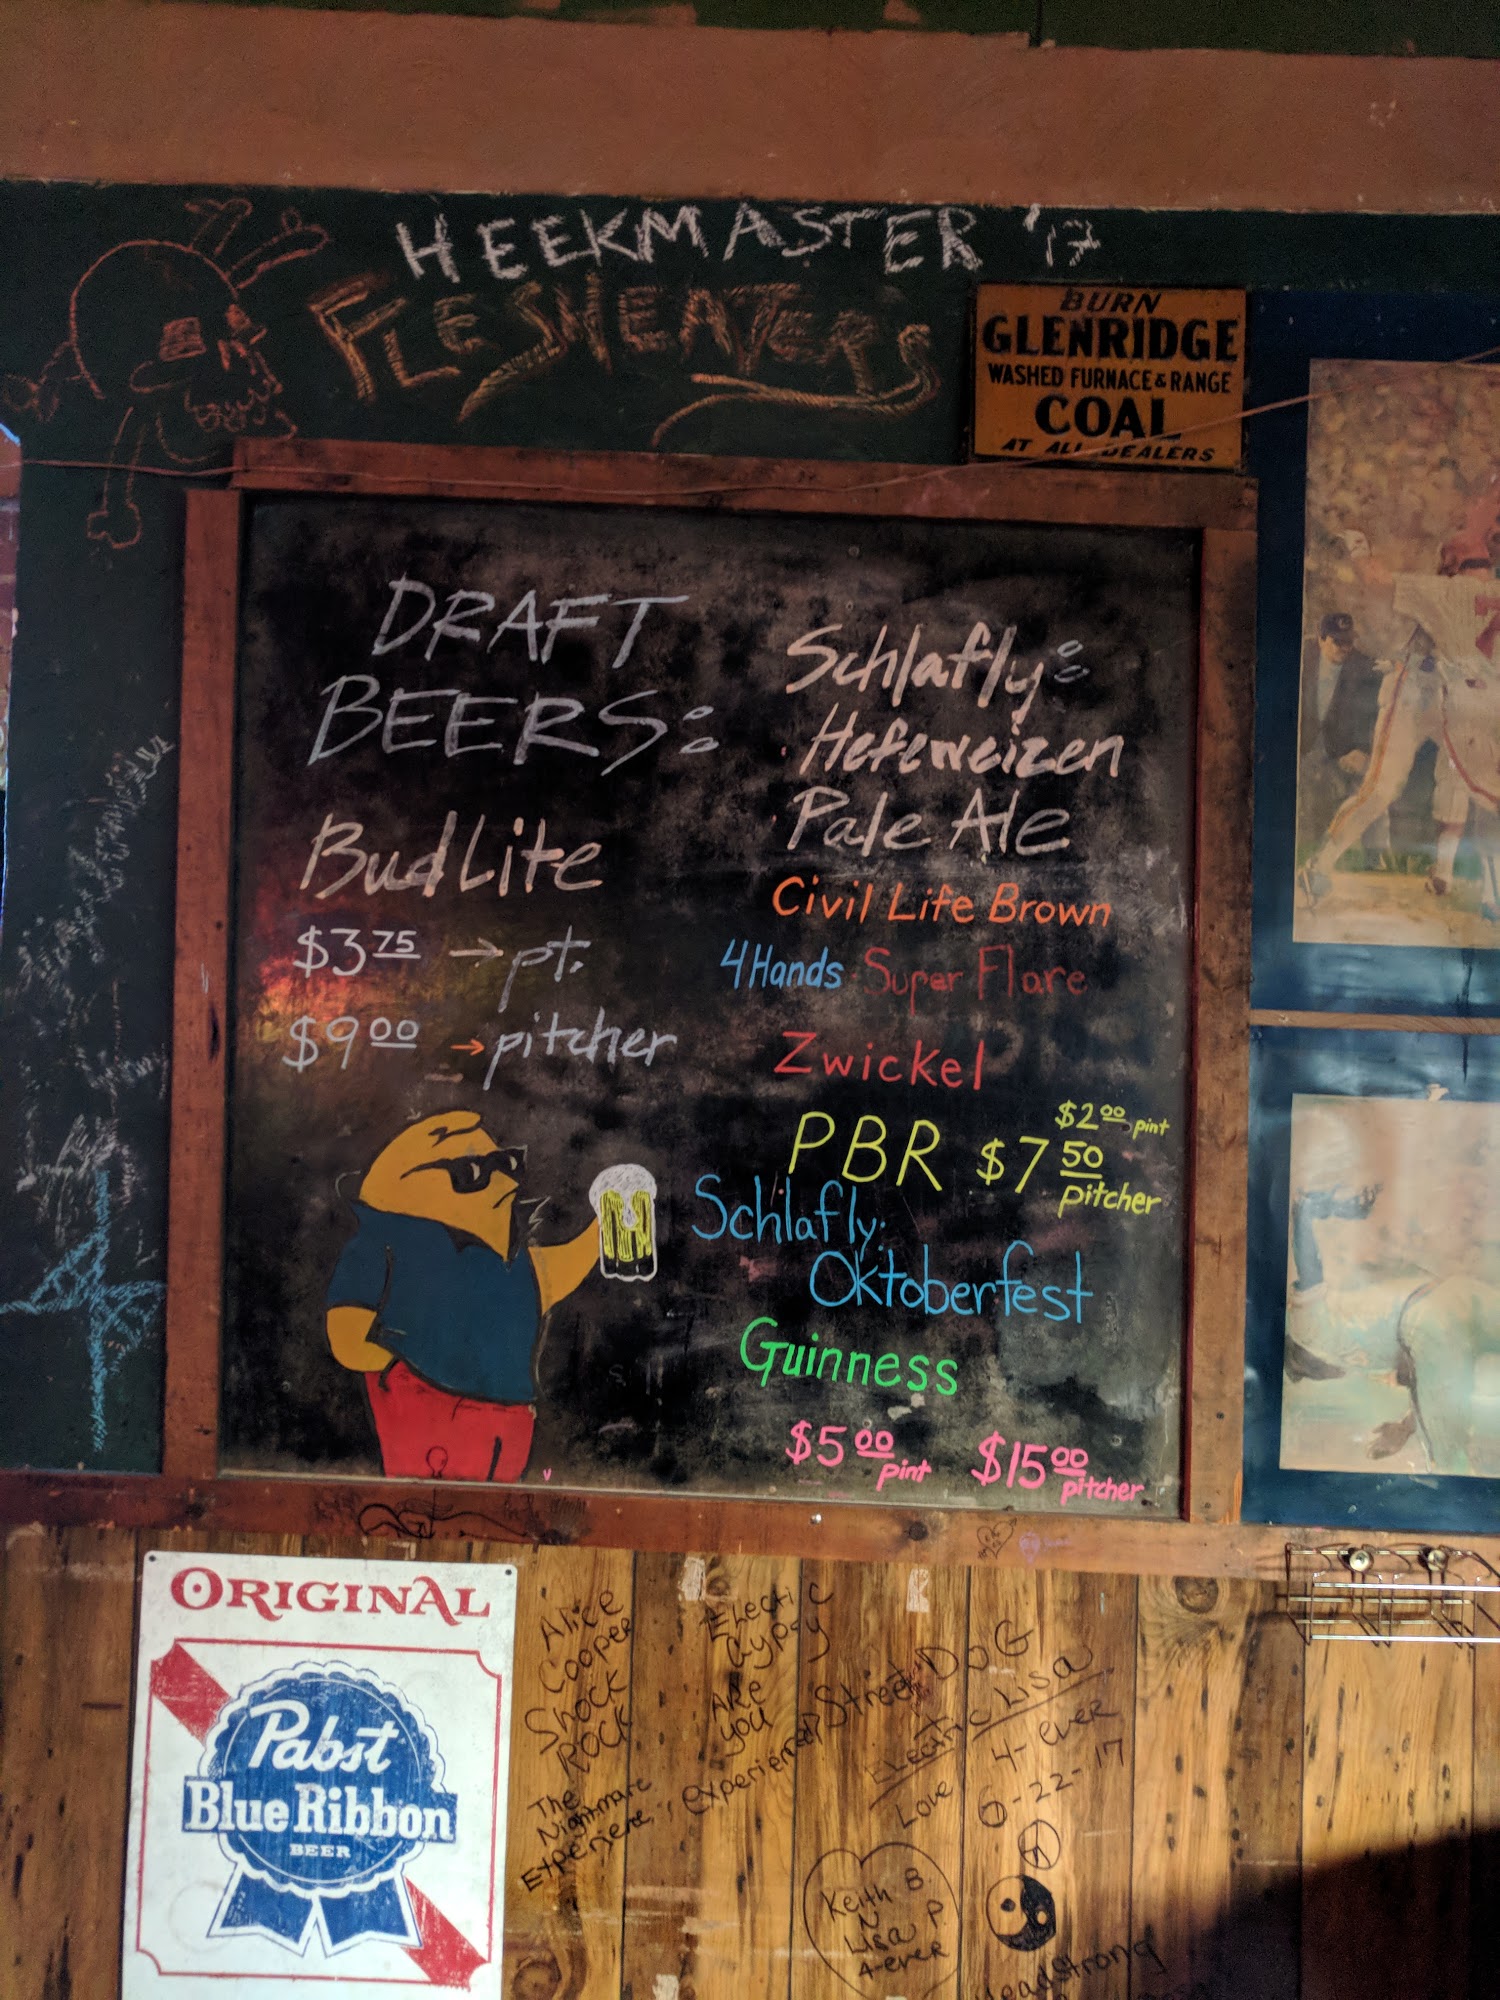 HEEKMASTER '17
FLESHEATERS
BURN
GLENRIDGE
WASHED FURNACE & RANGE
COAL
AT ALL DEALERS
DRAFT
BEERS:
Bud Lite
$3.75 → pt.
$9.00 → pitcher
Schlafly:
Hefeweizen
Pale Ale
Civil Life Brown
4 Hands Super Flare
Zwickel
PBR $2.00 pint
$7.50 pitcher
Schlafly:
Oktoberfest
Guinness
$5.00 pint $15.00 pitcher
ORIGINAL
Pabst
Blue Ribbon
BEER
Alice
Cooper
Shock
Rock
The
Nightmare
Experience
Electric
Gypsy
Are
You
Experienced
Street Dog
Electric Lisa
Love 4-ever
6-22-17
Keith B.
N
Lisa P.
4-ever
Headstrong